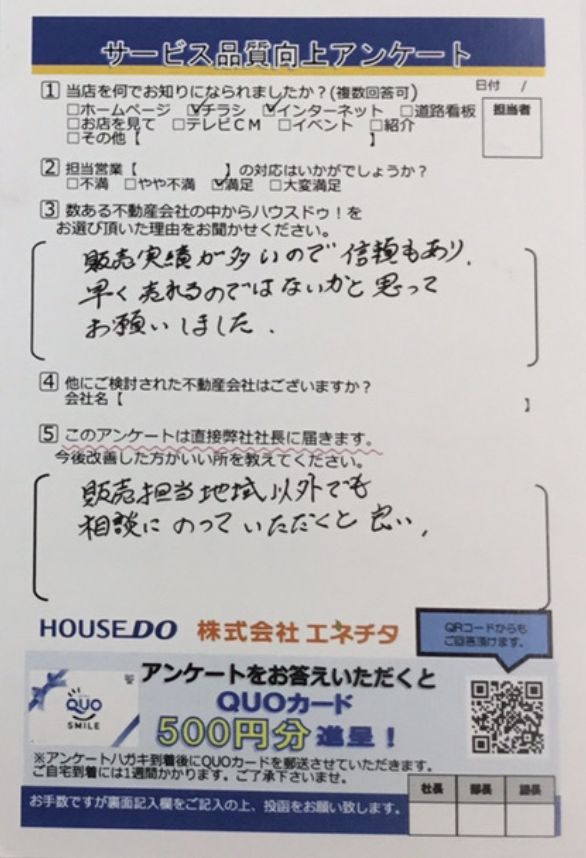 サービス品質向上アンケート
日付　/
担当者
1 当店を何でお知りになられましたか？(複数回答可)
□ホームページ ☑チラシ ☑インターネット □道路看板
□お店を見て □テレビCM □イベント □紹介
□その他【　】
2 担当営業【　】の対応はいかがでしょうか？
□不満 □やや不満 ☑満足 □大変満足
3 数ある不動産会社の中からハウスドゥ！を
お選び頂いた理由をお聞かせください。
販売実績が多いので信頼もあり、
早く売れるのではないかと思って
お願いしました.
4 他にご検討された不動産会社はございますか？
会社名【　】
5 このアンケートは直接弊社社長に届きます。
今後改善した方がいい所を教えてください。
販売担当地域以外でも
相談にのっていただくと良い,
HOUSEDO 株式会社エネチタ
QRコードからも
ご回答頂けます。
アンケートをお答えいただくと
QUOカード
500円分進呈！
QUO
SMILE
※アンケートハガキ到着後にQUOカードを郵送させていただきます。
ご自宅到着には1週間かかります。ご了承下さいませ。
社長 部長 課長
お手数ですが裏面記入欄をご記入の上、投函をお願い致します。